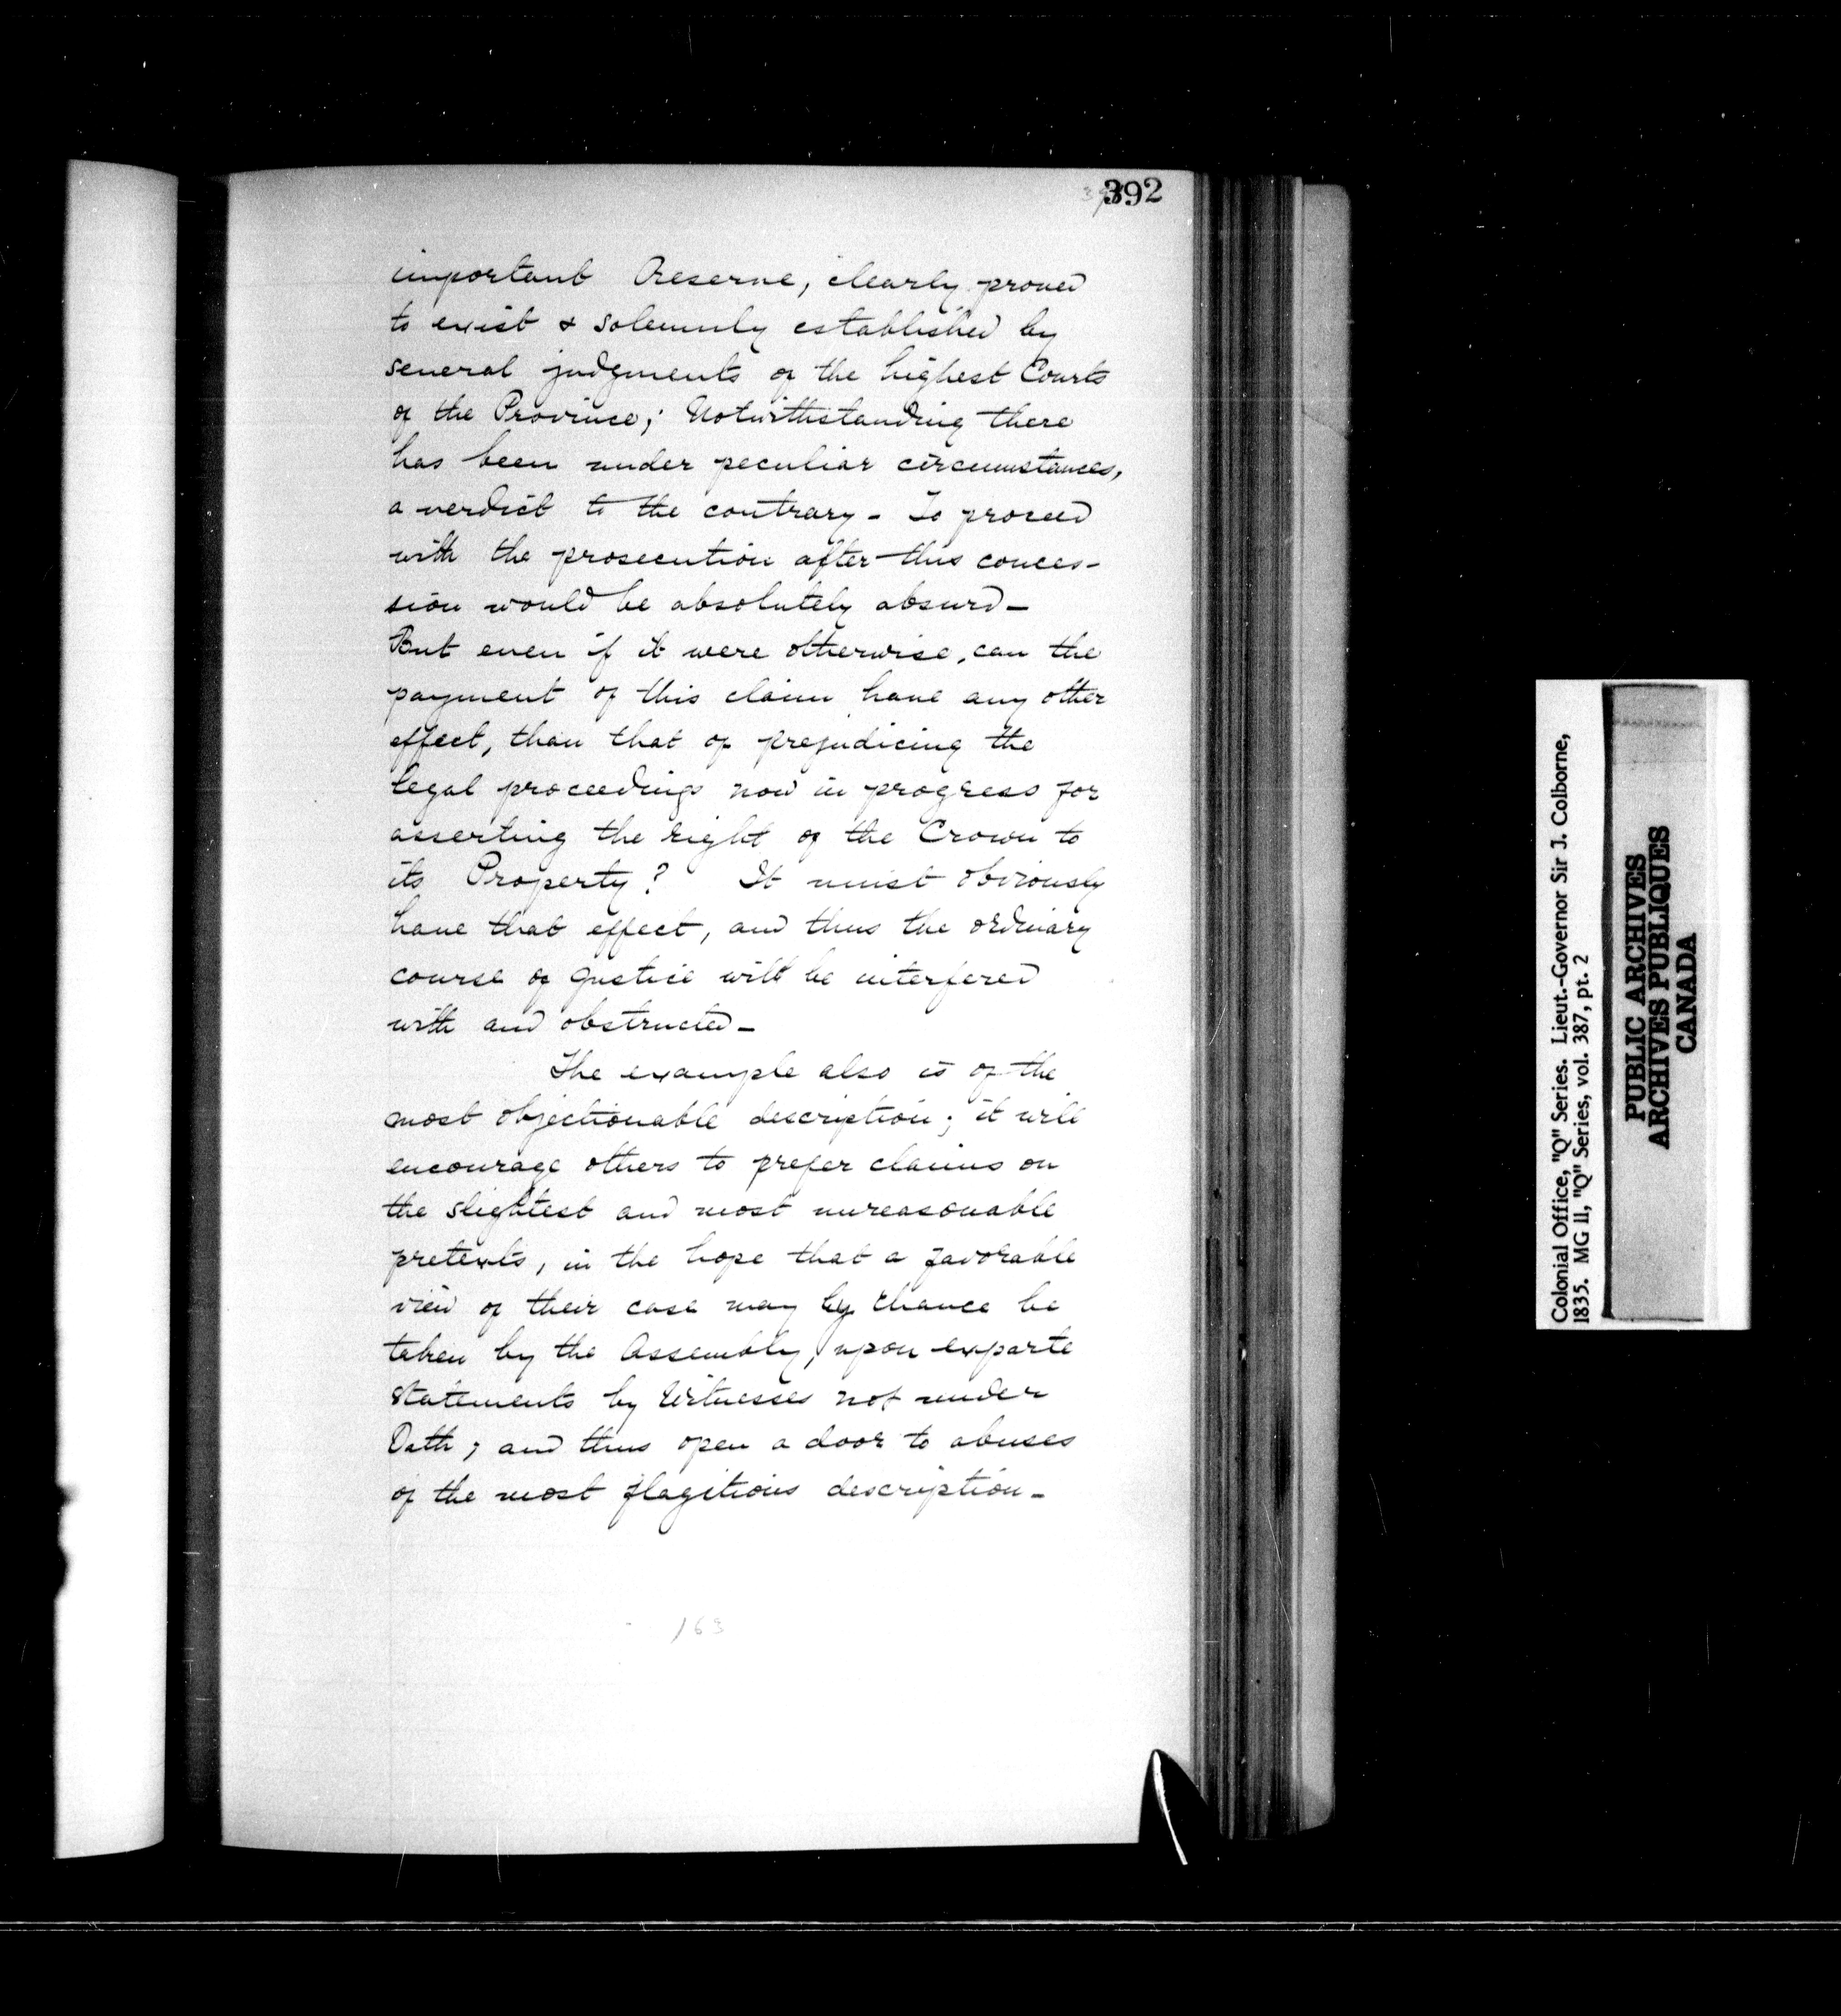 392
important Reserve, clearly proved
to exist & solemnly established by
several judgments of the highest Courts
of the Province; Notwithstanding there
has been under peculiar circumstances,
a verdict to the contrary - To proceed
with the prosecution after this conces-
sion would be absolutely absurd -
But even if it were otherwise, can the
payment of this claim have any other
effect, than that of prejudicing the
legal proceedings now in progress for
asserting the right of the Crown to
its Property? It must obviously
have that effect, and thus the ordinary
course of Justice will be interfered
with and obstructed -
The example also is of the
most objectionable description; it will
encourage others to prefer claims on
the slightest and most unreasonable
pretexts, in the hope that a favorable
view of their case may by chance be
taken by the Assembly, upon exparte
statements by Witnesses not under
Oath; and thus open a door to abuses
of the most flagitious description -
163
Colonial Office, "Q" Series. Lieut.-Governor Sir J. Colborne,
1835. MG 11, "Q" Series, vol. 387, pt. 2
PUBLIC ARCHIVES
ARCHIVES PUBLIQUES
CANADA